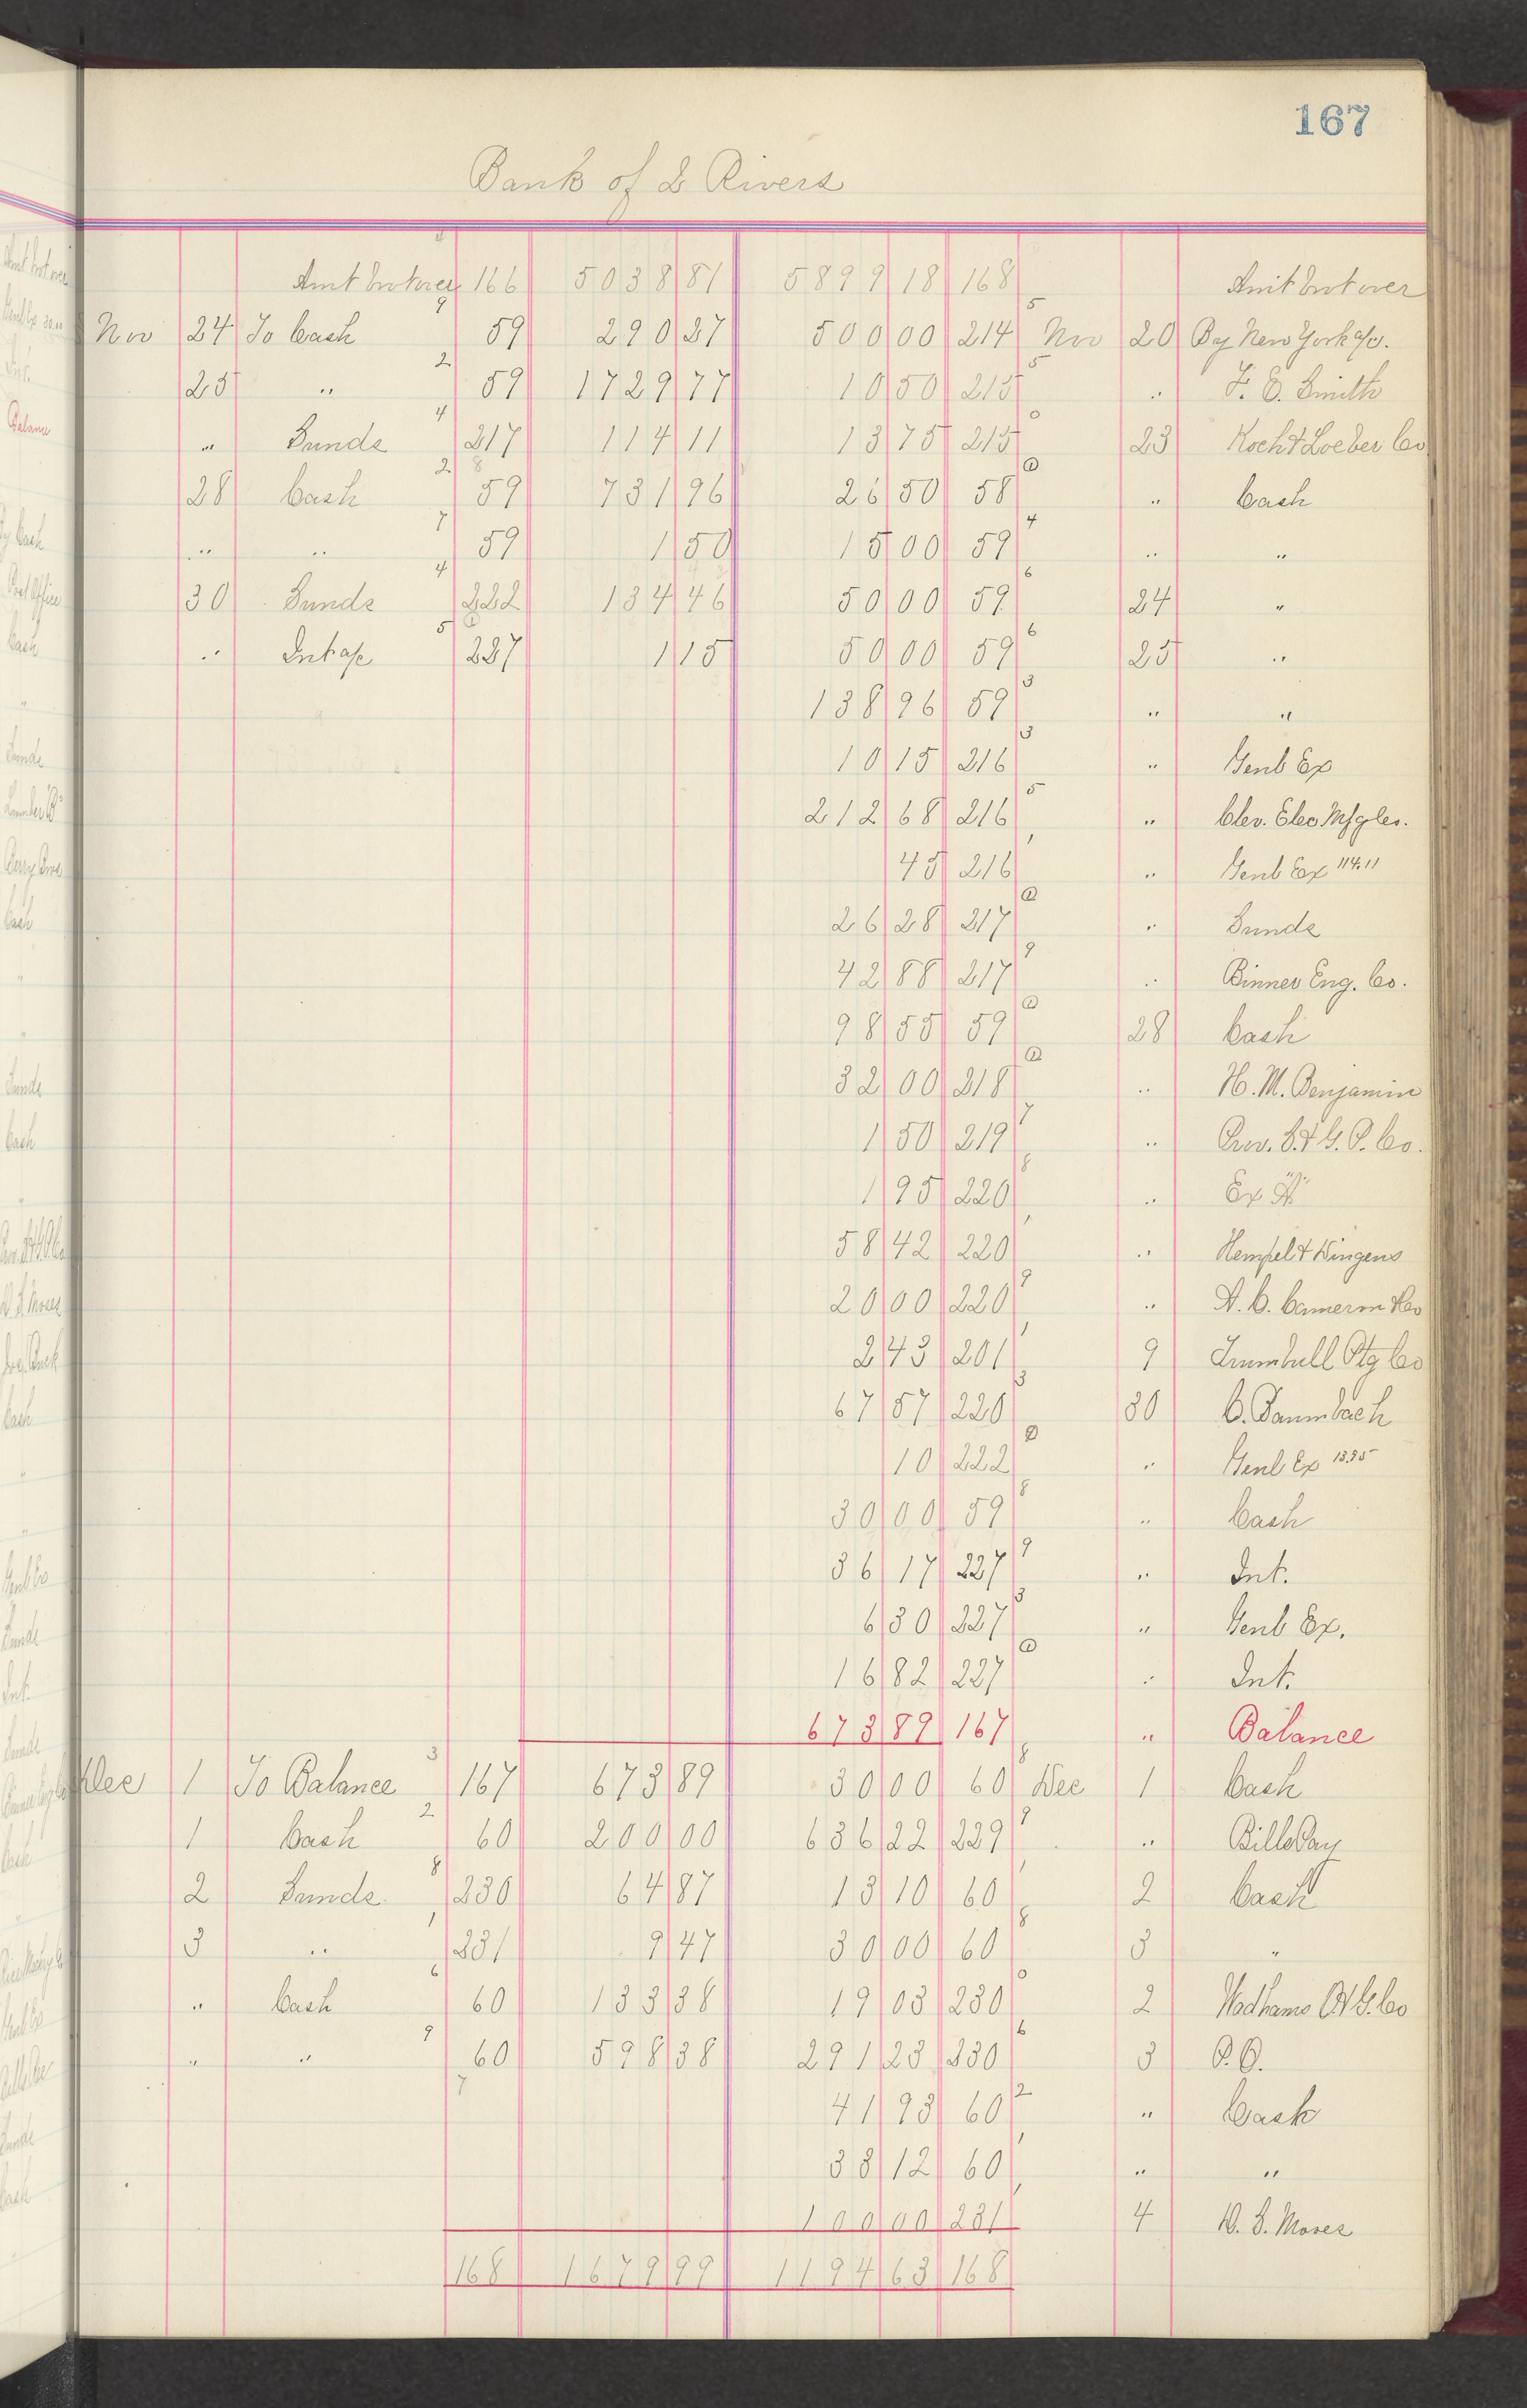 167
Bank of 2 Rivers
Amt brot over 166 5038 81 5899 18 168 Amt brot over
Nov 24 To Cash 9 59 290 37 500 00 214 5 Nov 20 By New York a/c.
25 " 2 59 1729 77 10 50 215 5 " F. E. Smith
" Sunds 4 217 114 11 13 75 215 0 23 Koch & Loeber Co
28 Cash 2 59 731 96 26 50 58 " Cash
" " 7 59 1 50 15 00 59 4 " "
30 Sunds 4 222 134 46 50 00 59 6 24 "
" Int a/c 5 227 1 15 50 00 59 6 25 "
138 96 59 3 " "
10 15 216 3 " Genl Ex
212 68 216 5 " Clev. Elec Mfg Co.
45 216 " Genl Ex 114.11
26 28 217 " Sunds
42 88 217 9 " Binner Eng. Co.
98 55 59 28 Cash
32 00 218 " H. M. Benjamin
1 50 219 7 "
1 95 220 8 " Ex "A"
58 42 220 " Hempel & Wingens
20 00 220 9 " A. C. Cameron & Co
2 43 201 9 Trumbull Ptg Co
67 57 220 3 30 C. Daumbach
10 222 " Genl Ex 13.35
30 00 59 8 " Cash
36 17 227 9 " Int.
6 30 227 3 " Genl Ex.
16 82 227 " Int.
673 89 167 " Balance
Dec 1 To Balance 3 167 673 89 30 00 60 8 Dec 1 Cash
1 Cash 2 60 200 00 636 22 229 9 " Bills Pay
2 Sunds 8 230 64 87 13 10 60 2 Cash
3 " 1 231 9 47 30 00 60 8 3 "
" Cash 6 60 133 38 19 03 230 0 2 Wadhams O & G. Co
" " 9 60 598 38 291 23 230 6 3 P. O.
7 41 93 60 2 " Cash
33 12 60 " "
100 00 231 4 D. S. Moses
168 1679 99 1194 63 168